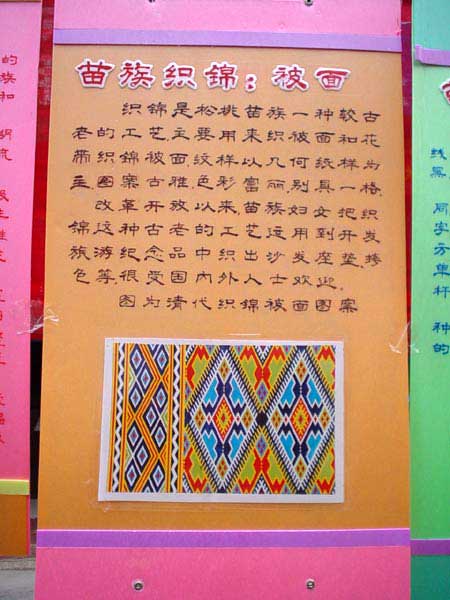 苗族织锦：被面
织锦是松桃苗族一种较古
老的工艺主要用来织被面和花
带。织锦被面纹样以几何纸样为
主。图案古雅，色彩富丽，别具一格。
改革开放以来，苗族妇女把织
锦这种古老的工艺运用到开发
旅游纪念品中，织出沙发座垫、挎
包等，很受国内外人士欢迎。
图为清代织锦被面图案
的
族和
线
黑
同
字
方
单
杆
种
的